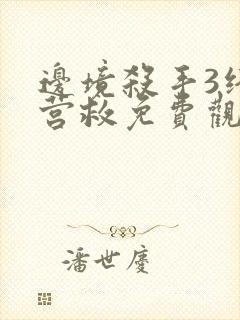 邊境殺手3
营救免費觀
潘世慶